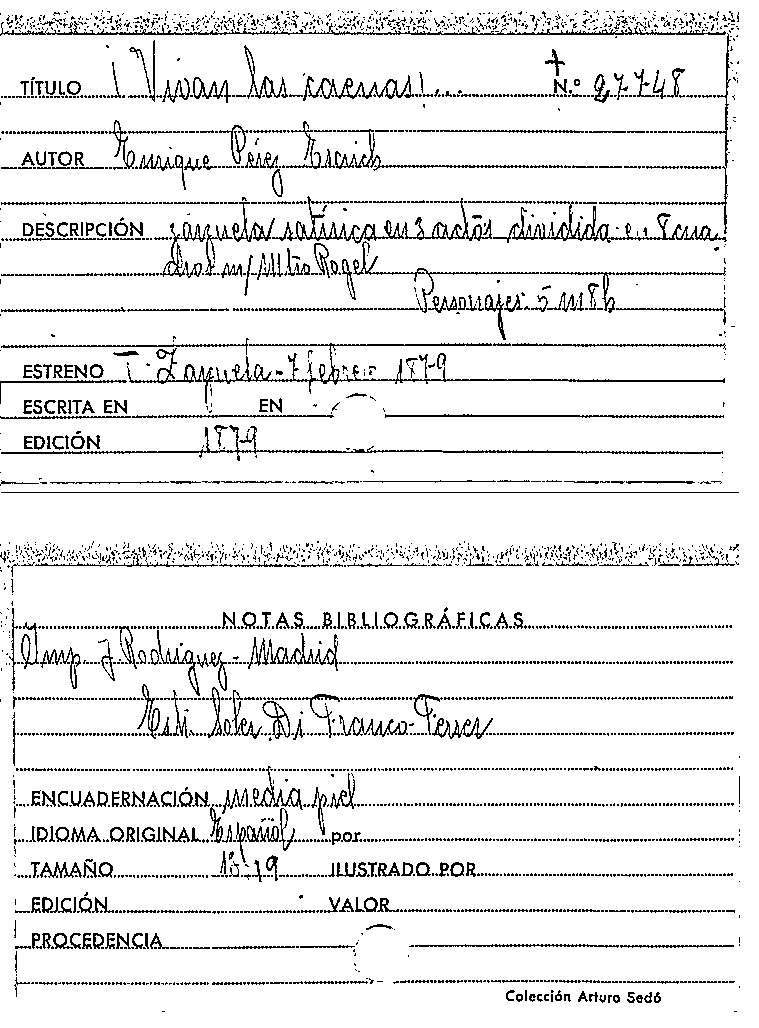 TÍTULO ¡Vivan las caenas!... N.º 27748
AUTOR Enrique Pérez Escrich
DESCRIPCIÓN zarzuela satírica en 3 actos dividida en 8 cua
dros m/ Mtro Rogel
Personajes 5 m 8 h
ESTRENO T. Zarzuela - 7 febrero 1879
ESCRITA EN EN
EDICIÓN 1879
NOTAS BIBLIOGRÁFICAS
Imp. J. Rodriguez - Madrid
Estr. Soler Di Franco - Ferrer
ENCUADERNACIÓN media piel
IDIOMA ORIGINAL Español por
TAMAÑO 19 ILUSTRADO POR
EDICIÓN VALOR
PROCEDENCIA
Colección Arturo Sedó